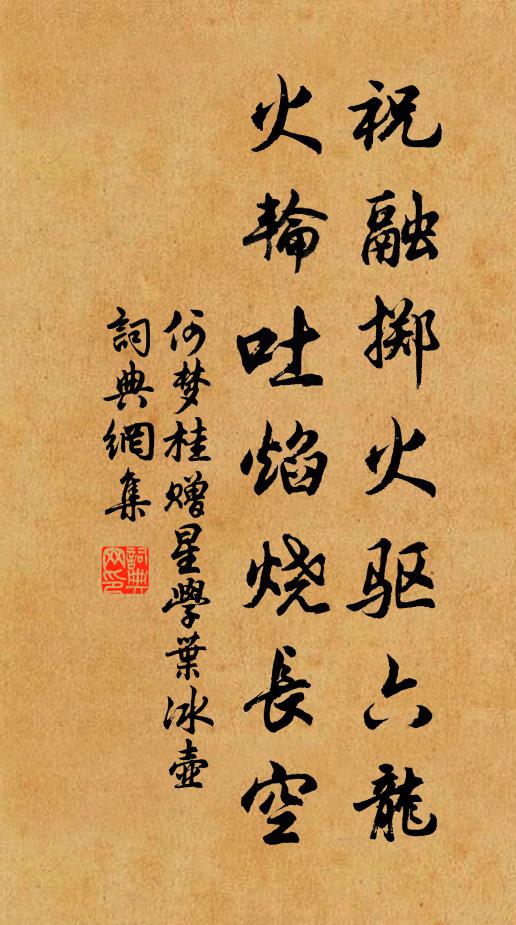 祝融掷火驱六龍
火輪吐焰烧長空
何梦桂赠星學葉冰壺
詞典網集
詞典网印